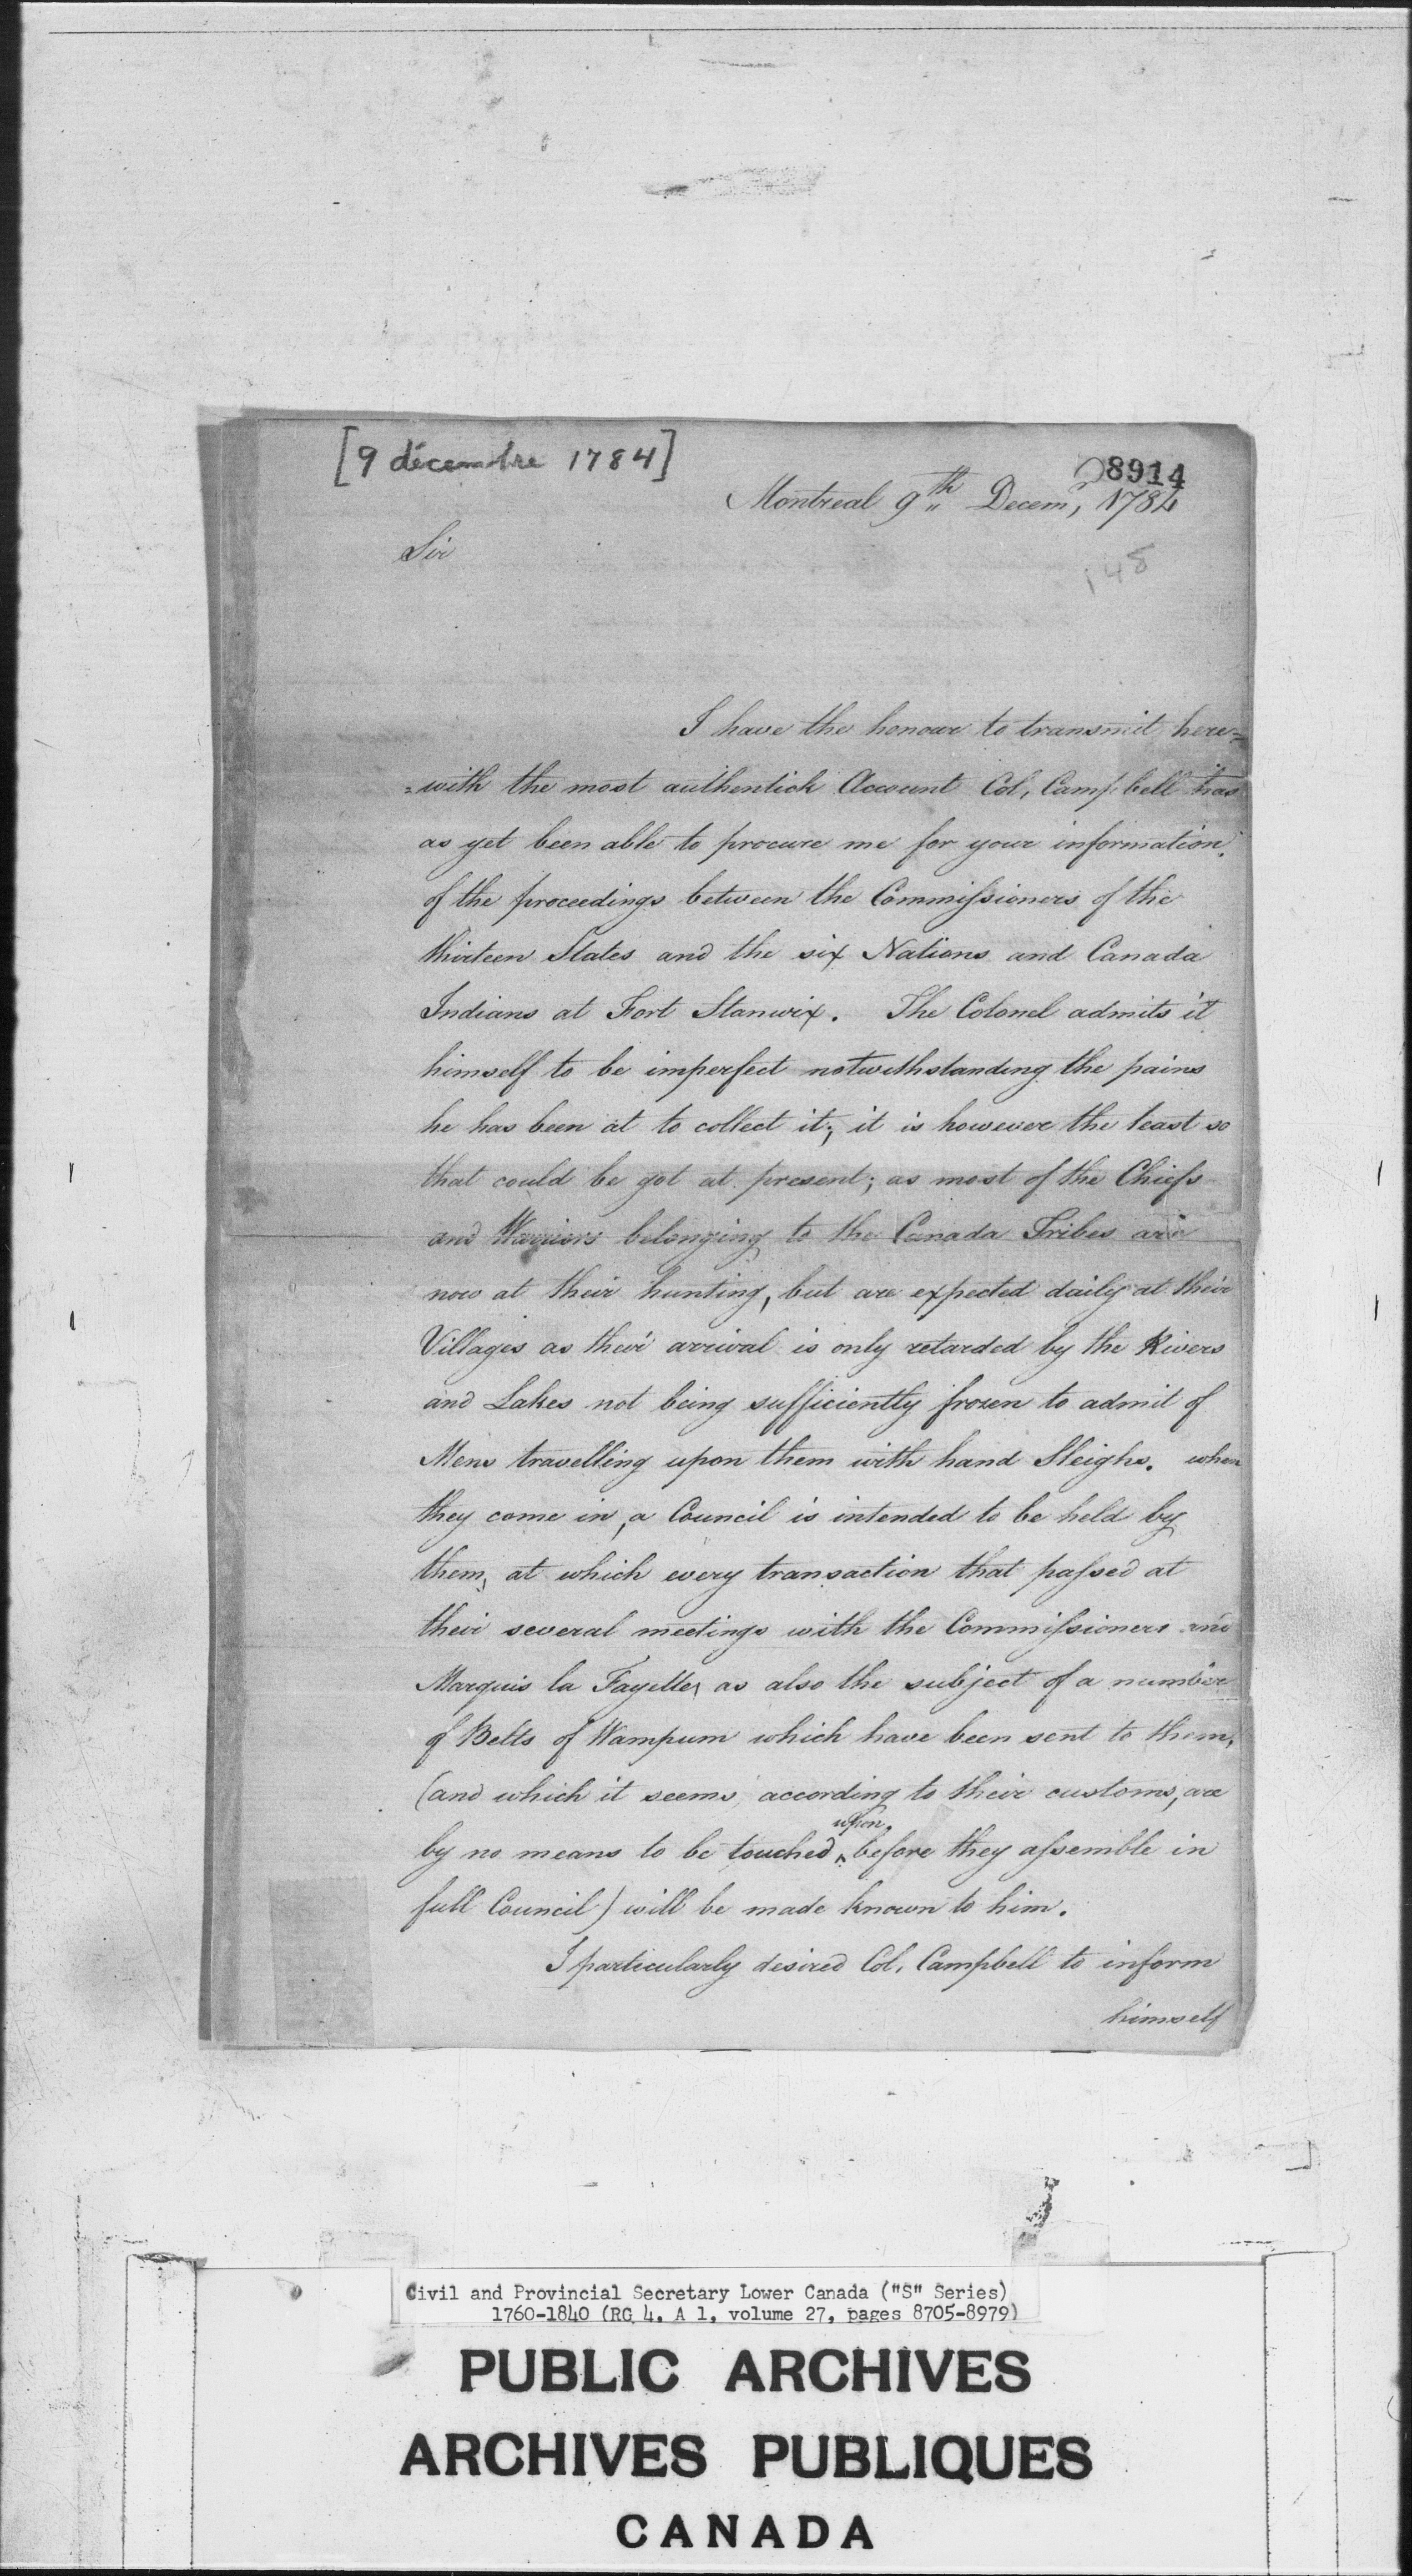 [9 décembre 1784]
8914
Montreal 9th Decemr, 1784
Sir
148
I have the honour to transmit here=
=with the most authentick Account Col. Campbell has
as yet been able to procure me for your information,
of the proceedings between the Commissioners of the
thirteen States and the six Nations and Canada
Indians at Fort Stanwix. The Colonel admits it
himself to be imperfect notwithstanding the pains
he has been at to collect it; it is however the least so
that could be got at present; as most of the Chiefs
and Warriors belonging to the Canada Tribes are
now at their hunting, but are expected daily at their
Villages as their arrival is only retarded by the Rivers
and Lakes not being sufficiently frozen to admit of
Mens travelling upon them with hand Sleighs. when
they come in, a Council is intended to be held by
them, at which every transaction that passed at
their several meetings with the Commissioners and
Marquis la Fayette, as also the subject of a number
of Belts of Wampum which have been sent to them,
(and which it seems, according to their customs, are
upon.
by no means to be touched ^ before they assemble in
full Council) will be made known to him.
I particularly desired Col. Campbell to inform
himself
Civil and Provincial Secretary Lower Canada ("S" Series)
1760-1840 (RG 4, A 1, volume 27, pages 8705-8979)
PUBLIC ARCHIVES
ARCHIVES PUBLIQUES
CANADA